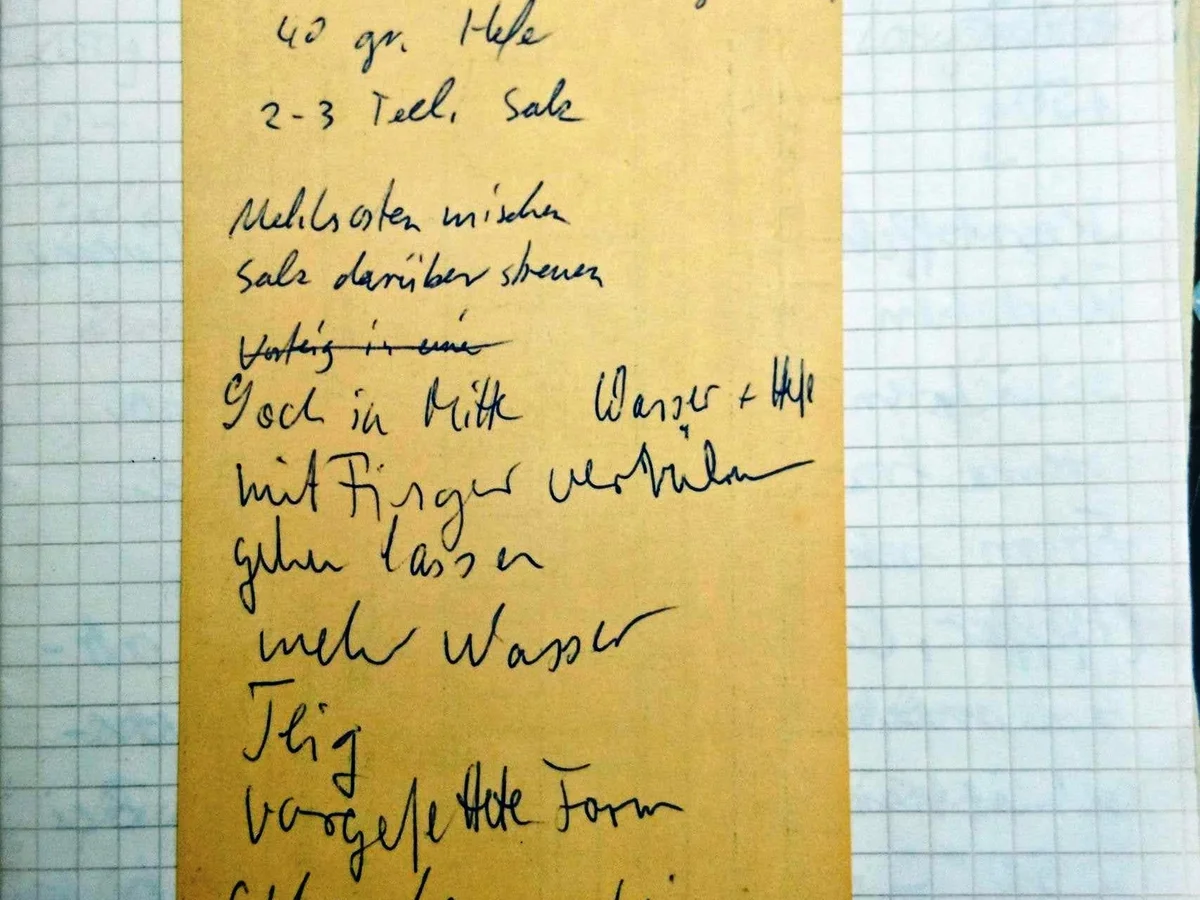 40 gr. Hefe
2-3 Teel. Salz
Mehlsorten mischen
Salz darüber streuen
Vorteig in eine
Loch in Mitte Wasser + Hefe
mit Finger verrühren
gehen lassen
mehr Wasser
Teig
vorgefettete Form